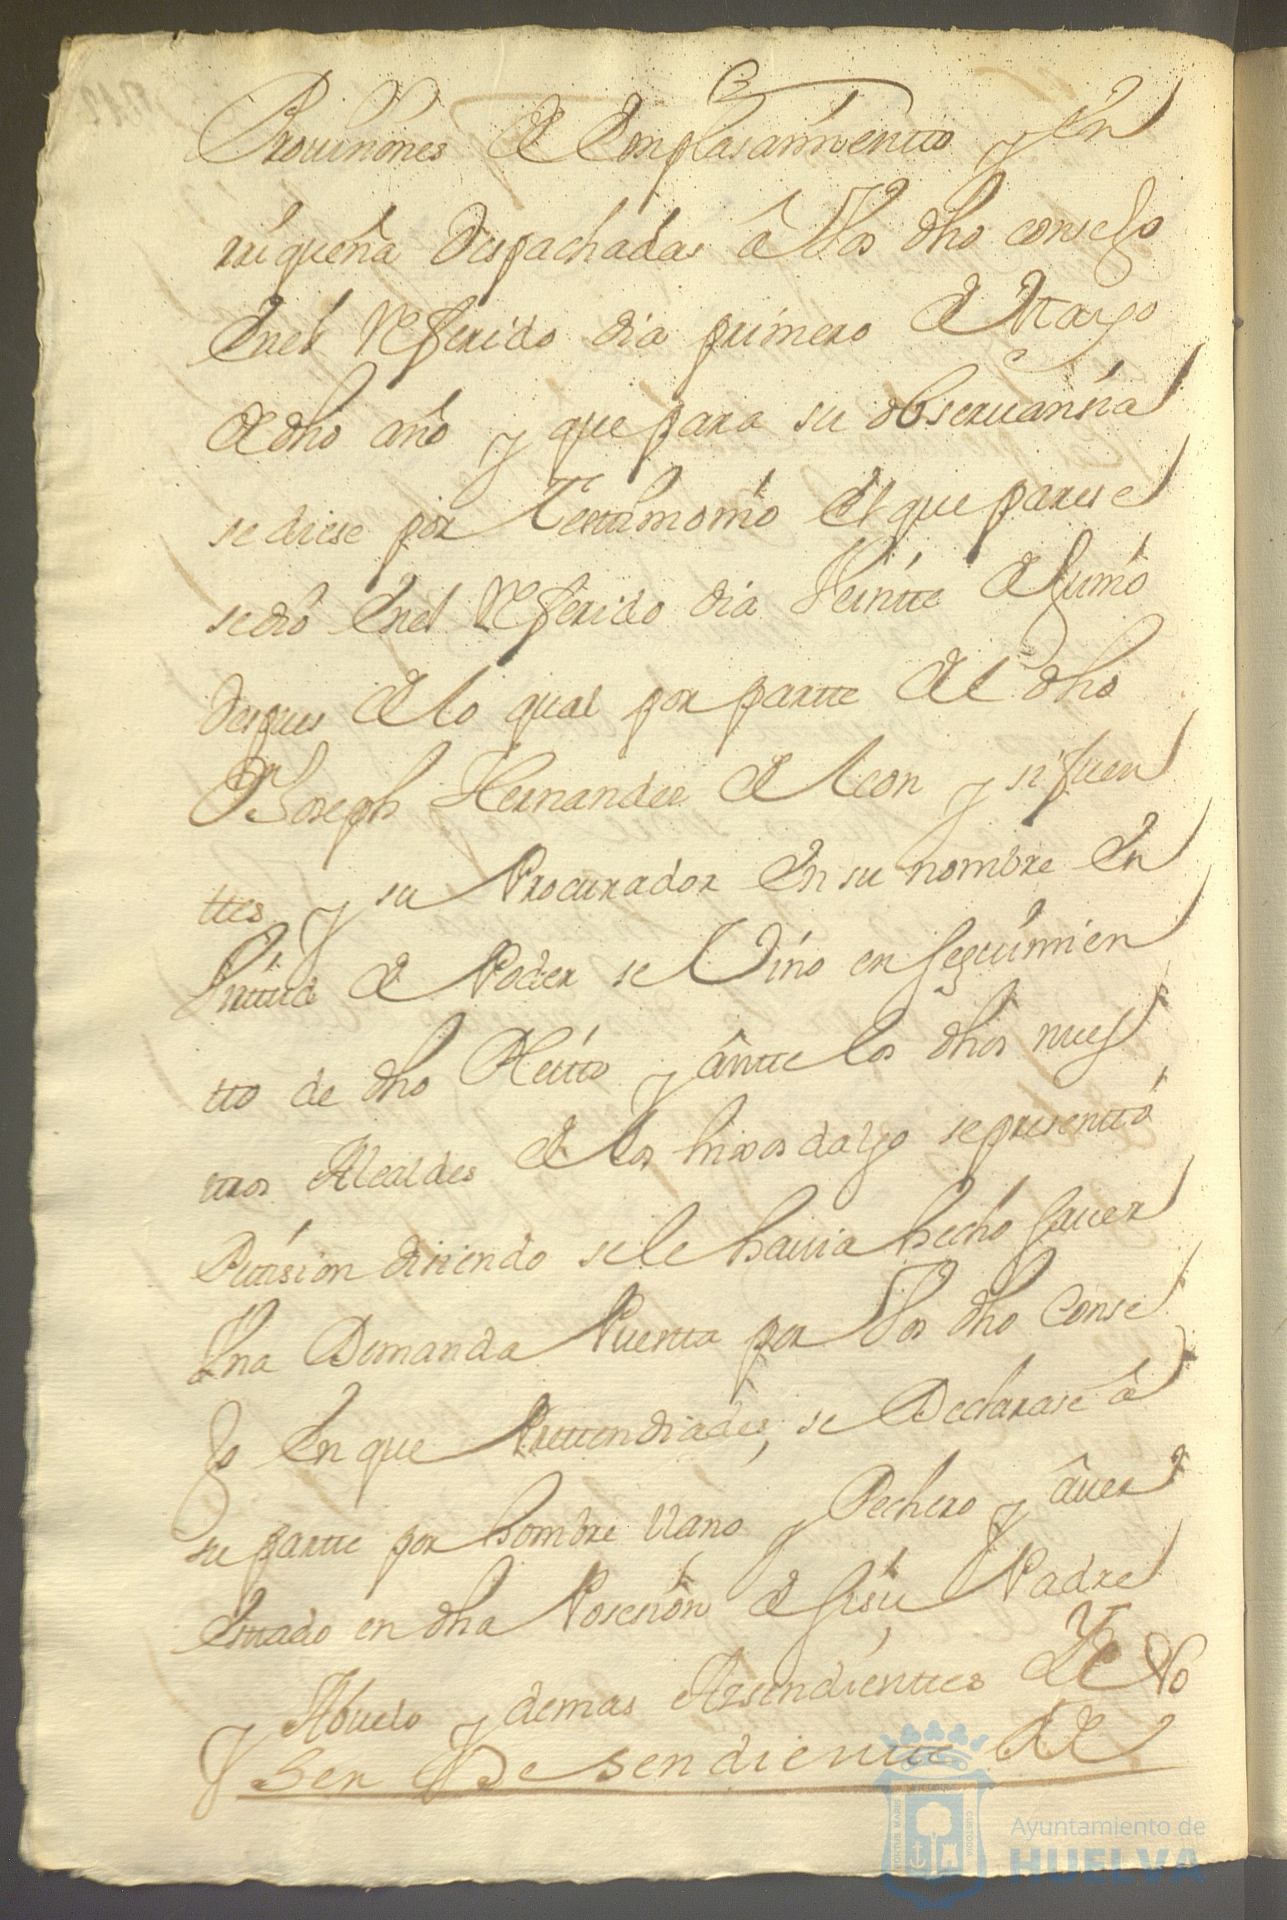 Prouiciones de Emplasamientto y En
rriqueña despachadas â Vos dho consejo
Enel Referido dia primero de Mayo
de dho año y que para su obseruansia
se diese por Testtimonio el que parese
sediô Enel Referido dia Veintte de Junio
despues de lo qual por partte del dho
Dn Joseph Hernandez de Leon y sifuen
ttes y su Procurador En su nombre En
Virttud de Poder se Vino en seguimien
tto de dho Pleitto y ântte los dhos nues
ttros Alcaldes de los hixosdalgo se presenttô
Pettision disiendo sele hauia hecho sauer
Vna Demanda Puestta por Vos dho Conse
jo En que Prettendiades, se Declarase â
su partte por hombre llano y Pechero y âuer
Esttado en dha Posesion de sî su Padre
y Abuelo y demas Assendienttes Y No
Ser Desendientte de
Ayuntamiento de
HUELVA